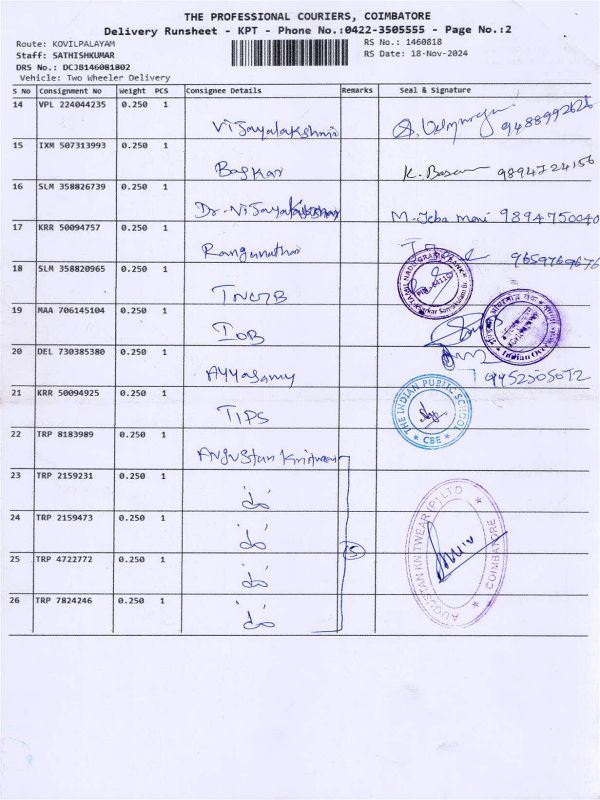 THE PROFESSIONAL COURIERS, COIMBATORE
Delivery Runsheet - KPT - Phone No.:0422-3505555 - Page No.:2
Route: KOVILPALAYAM
RS No.: 1460818
Staff: SATHISHKUMAR
RS Date: 18-Nov-2024
DRS No.: DCJB146081802
Vehicle: Two Wheeler Delivery
S No Consignment No Weight PCS Consignee Details Remarks Seal & Signature
14 VPL 224044235 0.250 1
Vijayalakshmi 9488992626
15 IXM 507313993 0.250 1
Baskar K. 9894724156
16 SLM 358826739 0.250 1
Dr. Vijayalakshmi M. Jeba Mani 9894750040
17 KRR 50094757 0.250 1
Rangunathan 9659769676
18 SLM 358820965 0.250 1
TNGB
19 MAA 706145104 0.250 1
IOB
20 DEL 730385380 0.250 1
Ayyasamy 9952505072
21 KRR 50094925 0.250 1
TIPS THE INDIAN PUBLIC SCHOOL CBE
22 TRP 8183989 0.250 1
Augustan Knitwear
23 TRP 2159231 0.250 1
do
24 TRP 2159473 0.250 1
do
25 TRP 4722772 0.250 1
do
5
AUGUSTAN KNITWEAR (P) LTD COIMBATORE
26 TRP 7824246 0.250 1
do